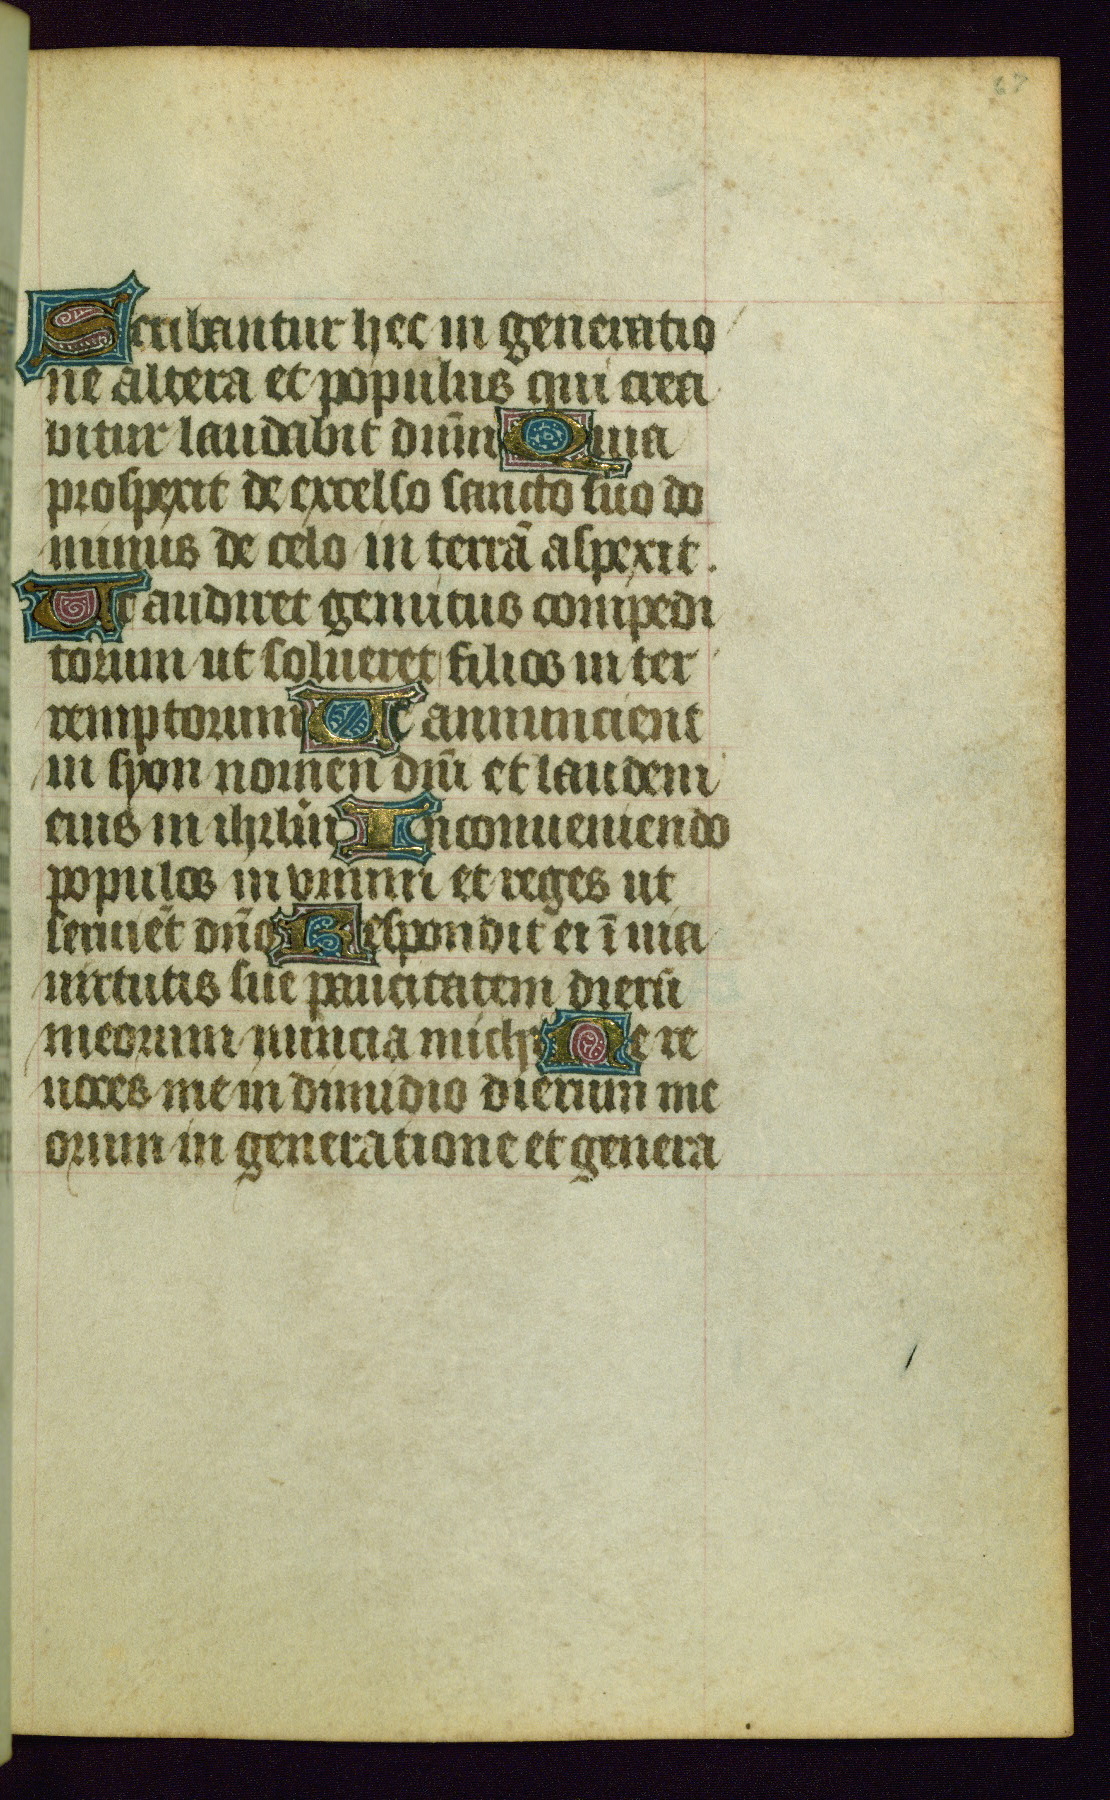 67
Scribantur hec in generatio
ne altera et populus qui crea
bitur laudabit dñm Quia
prospexit de excelso sancto suo do
minus de celo in terrã aspexit.
Ut audiret gemitus compedi
torum ut solueret filios in ter
remptorum Ut annuncient
in syon nomen dñi et laudem
eius in ihrlm̃ In conueniendo
populos in vnum et reges ut
seruiẽt dño Respondit ei ĩ uia
uirtutis sue paucitatem dierũ
meorum nuncia michi Ne re
uoces me in dimidio dierum me
orum in generatione et genera